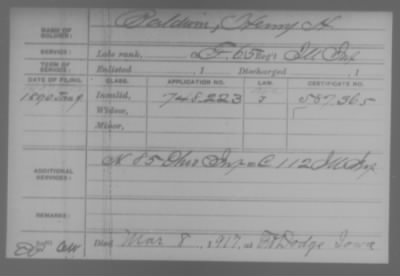 NAME OF SOLDIER: Baldwin, Henry H.
SERVICE: Late rank, F. 65 Reg't Ill Inf
TERM OF SERVICE: Enlisted , 1 Discharged , 1
DATE OF FILING. CLASS. APPLICATION NO. LAW. CERTIFICATE NO.
1890 Invalid, 748.223 587.365
Widow,
Minor,
ADDITIONAL SERVICES: N 85 Ohio Inf = C 112 Ill Inf
REMARKS:
Died Mar 8, 1917, at Ft Dodge Iowa